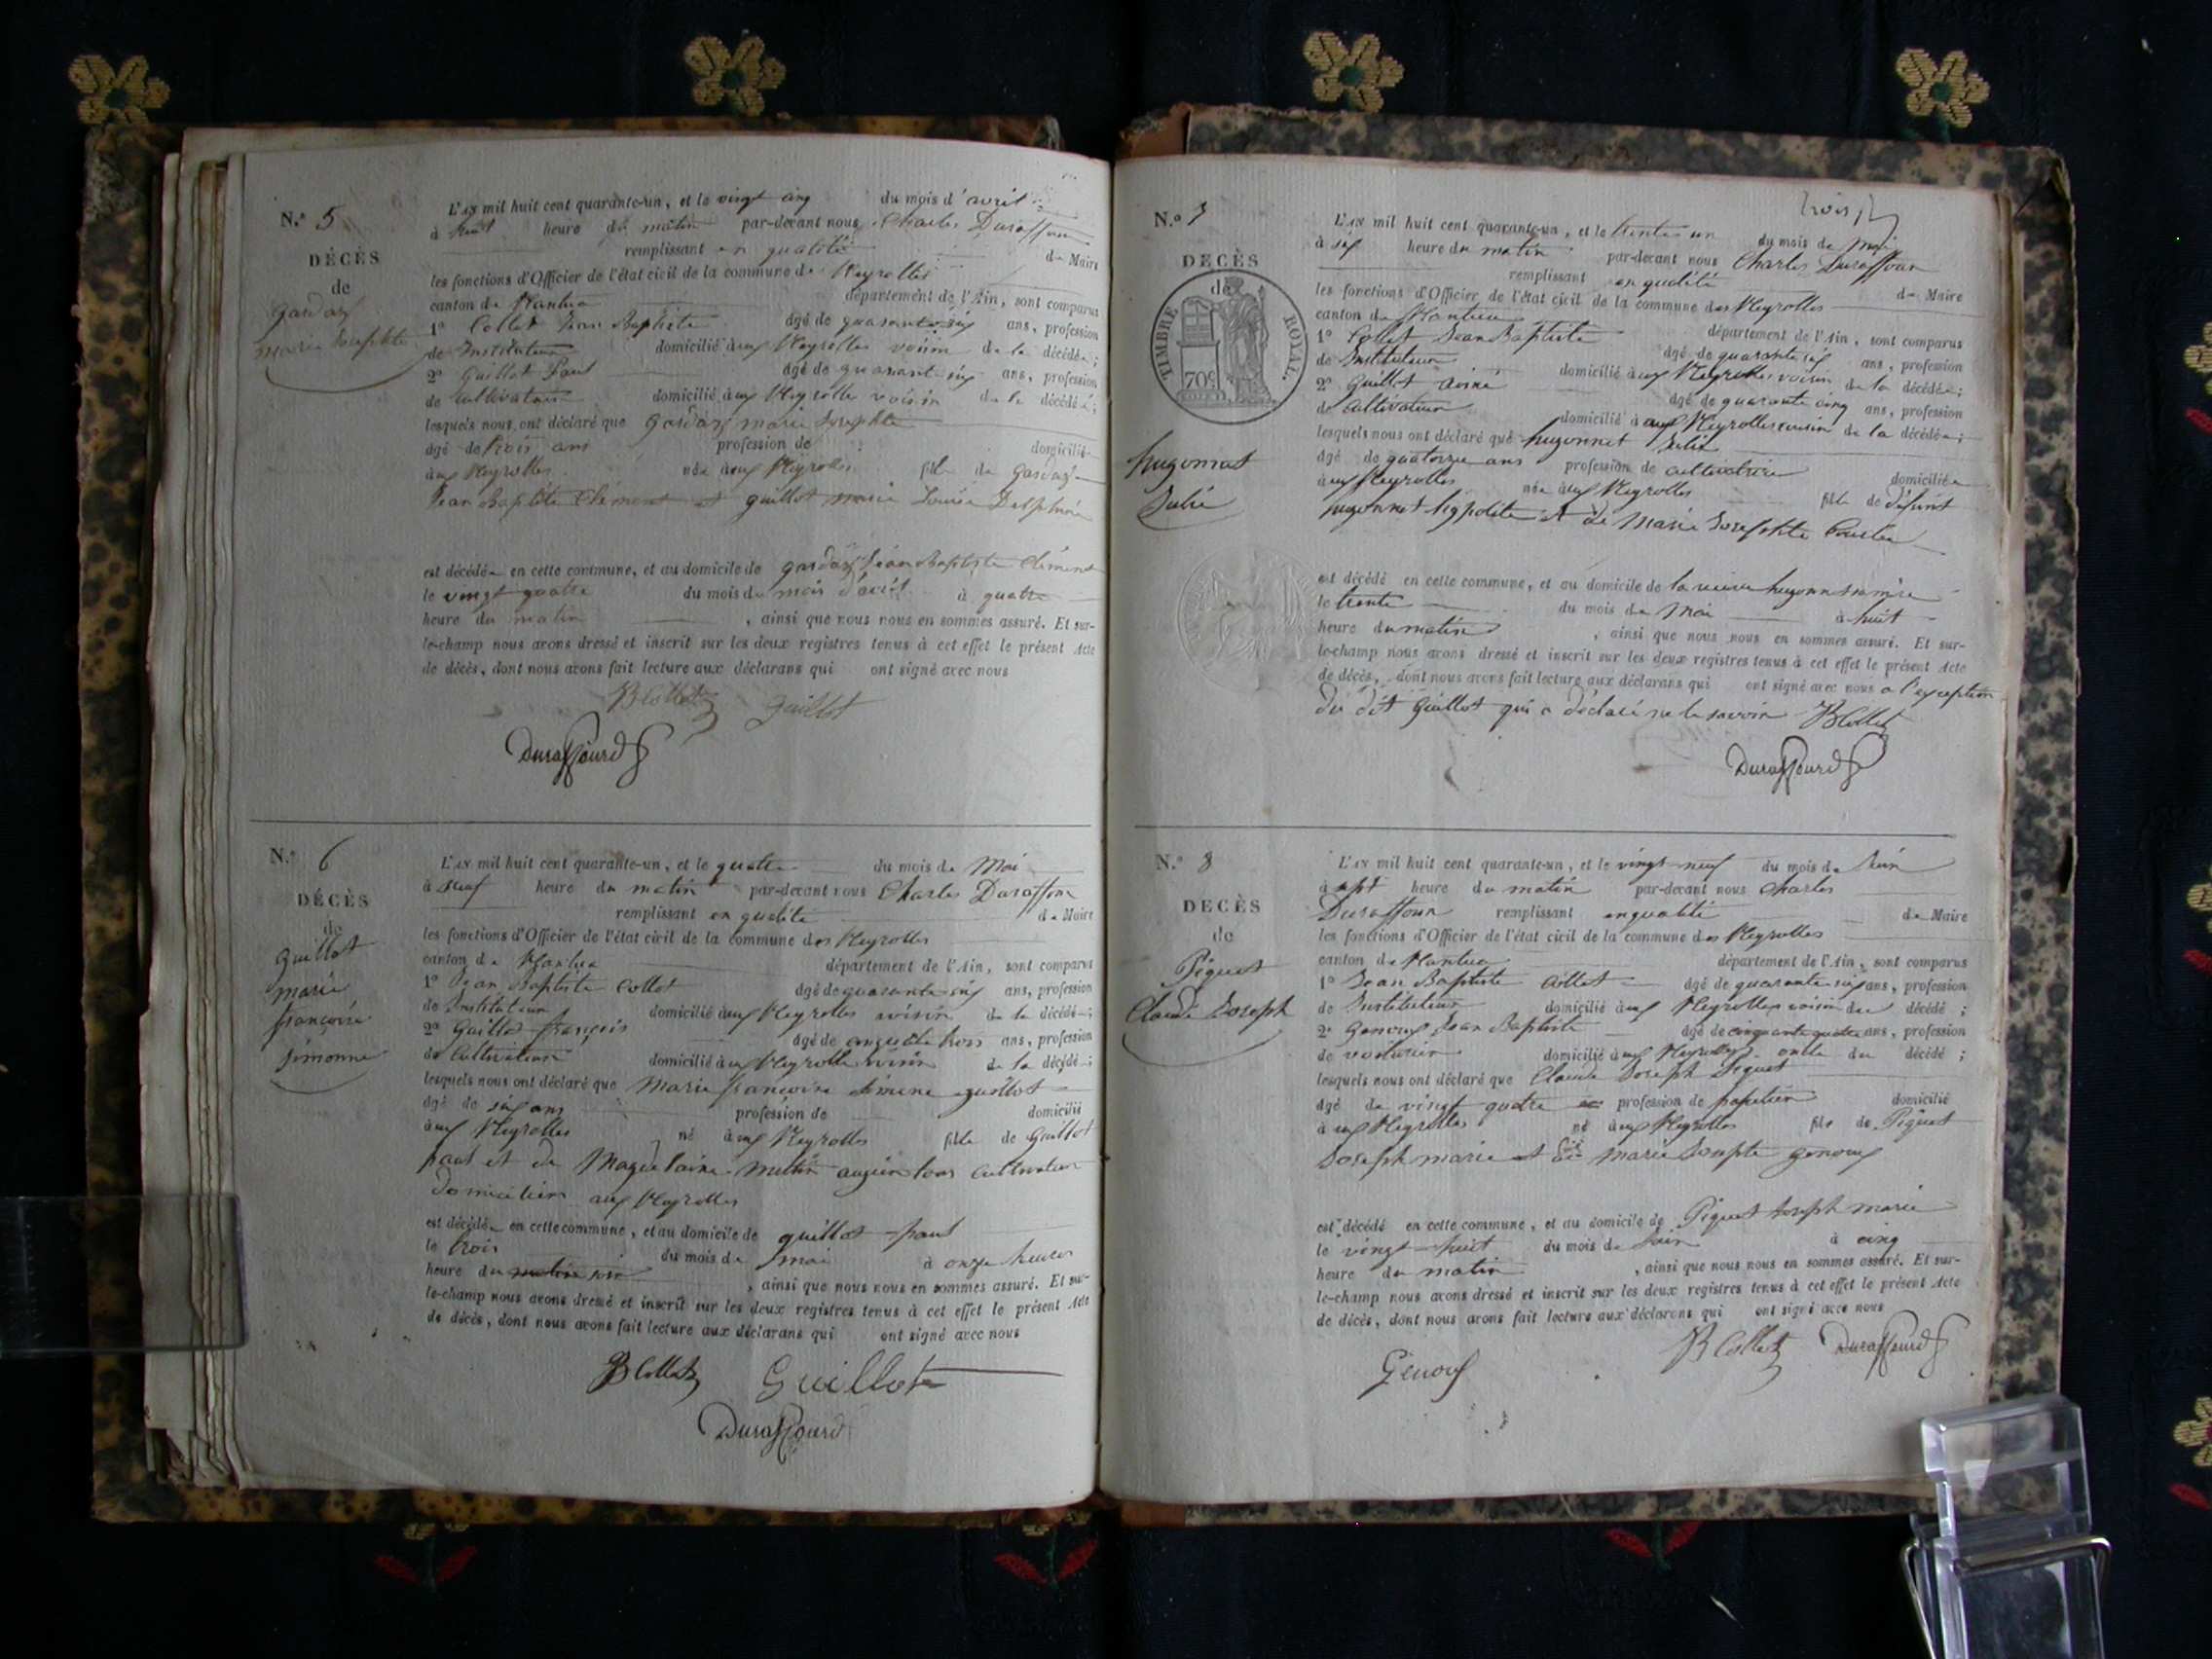 N.o 5
DÉCÈS
de
gardaz
marie Josephte
L'AN mil huit cent quarante-un, et le vingt cinq du mois d'avril
à huit heure du matin par-devant nous Charles Duraffour
remplissant en qualité de Maire
les fonctions d'Officier de l'état civil de la commune des Neyrolles
canton de Nantua département de l'Ain, sont comparus
1o Collet Jean Baptiste âgé de quarante six ans, profession
de Instituteur domicilié aux Neyrolles voisin de la décédée;
2o Guillot Paul âgé de quarante six ans, profession
de cultivateur domicilié aux Neyrolles voisin de la décédée;
lesquels nous ont déclaré que gardaz marie Josephte
âgé de trois ans profession de domicilié
aux Neyrolles née aux Neyrolles fille de gardaz
Jean Baptiste Clément et guillot marie Louise Delphine
est décédée en cette commune, et au domicile de gardaz Jean Baptiste Clément
le vingt quatre du mois de mois d'avril à quatre
heure du matin, ainsi que nous nous en sommes assuré. Et sur-
le-champ nous avons dressé et inscrit sur les deux registres tenus à cet effet le présent Acte
de décès, dont nous avons fait lecture aux déclarans qui ont signé avec nous
JBCollet guillot
Duraffourd
N.o 6
DÉCÈS
de
guillot
marie
françoise
simonne
L'AN mil huit cent quarante-un, et le quatre du mois de Mai
à neuf heure du matin par-devant nous Charles Duraffour
remplissant en qualité de Maire
les fonctions d'Officier de l'état civil de la commune des Neyrolles
canton de Nantua département de l'Ain, sont comparus
1o Jean Baptiste Collet âgé de quarante six ans, profession
de Instituteur domicilié aux Neyrolles voisin de la décédée;
2o Guillot françois âgé de cinquante trois ans, profession
de Cultivateur domicilié aux Neyrolles voisin de la décédée;
lesquels nous ont déclaré que Marie françoise simone guillot
âgé de six ans profession de domicilié
aux Neyrolles né aux Neyrolles fille de Guillot
paul et de Magdelaine cultivateur
domiciliés aux Neyrolles
est décédée en cette commune, et au domicile de guillot paul
le trois du mois de mai à onze heures
heure du matin soir, ainsi que nous nous en sommes assuré. Et sur-
le-champ nous avons dressé et inscrit sur les deux registres tenus à cet effet le présent Acte
de décès, dont nous avons fait lecture aux déclarans qui ont signé avec nous
JBCollet Guillot
Duraffourd
trois
N.o 7
DÉCÈS
de
TIMBRE ROYAL.
70c
hugonnet
Julie
L'AN mil huit cent quarante-un, et le trente un du mois de Mai
à six heure du matin par-devant nous Charles Duraffour
remplissant en qualité de Maire
les fonctions d'Officier de l'état civil de la commune des Neyrolles
canton de Nantua département de l'Ain, sont comparus
1o Collet Jean Baptiste âgé de quarante six ans, profession
de Instituteur domicilié aux Neyrolles voisin de la décédée;
2o Guillot aimé âgé de quarante cinq ans, profession
de Cultivateur domicilié à aux Neyrolles cousin de la décédée;
lesquels nous ont déclaré que hugonnet Julie
âgé de quatorze ans profession de cultivatrice domiciliée
aux Neyrolles née aux Neyrolles fille de défunt
hugonnet hippolite et de Marie Josephte
est décédé en cette commune, et au domicile de la veuve hugonnet sa mère
le trente du mois de Mai à huit
heure du matin, ainsi que nous nous en sommes assuré. Et sur-
le-champ nous avons dressé et inscrit sur les deux registres tenus à cet effet le présent Acte
de décès, dont nous avons fait lecture aux déclarans qui ont signé avec nous a l'exception
du dit Guillot qui a déclaré ne le savoir JBCollet
Duraffourd
N.o 8
DÉCÈS
de
Piquet
Claude Joseph
L'AN mil huit cent quarante-un, et le vingt neuf du mois de Juin
à sept heure du matin par-devant nous Charles
Duraffour remplissant en qualité de Maire
les fonctions d'Officier de l'état civil de la commune des Neyrolles
canton de Nantua département de l'Ain, sont comparus
1o Jean Baptiste Collet âgé de quarante six ans, profession
de Instituteur domicilié aux Neyrolles voisin du décédé;
2o Genoux Jean Baptiste âgé de cinquante quatre ans, profession
de voiturier domicilié aux Neyrolles oncle du décédé;
lesquels nous ont déclaré que Claude Joseph Piquet
âgé de vingt quatre profession de papetier domicilié
aux Neyrolles né aux Neyrolles fils de Piquet
Joseph marie et de marie Josephte genoux
est décédé en cette commune, et au domicile de Piquet Joseph marie
le vingt huit du mois de Juin à cinq
heure du matin, ainsi que nous nous en sommes assuré. Et sur-
le-champ nous avons dressé et inscrit sur les deux registres tenus à cet effet le présent Acte
de décès, dont nous avons fait lecture aux déclarans qui ont signé avec nous
JBCollet Duraffourd
Genoux